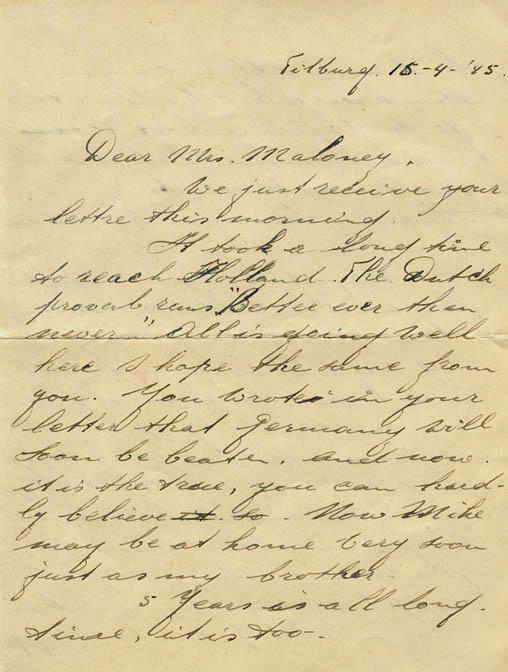 Tilburg. 15-4-'45.
Dear Mrs. Maloney,
We just receive your
lettre this morning.
It took a long time
to reach Holland. The Dutch
proverb runs "Better ever then
never" All is going well
here I hope the same from
you. You wrote in your
letter that Germany will
soon be beaten, and now
it is the true, you can hard-
ly believe it so. Now Mike
may be at home very soon
just as my brother.
5 Years is all long
time, it is too-.